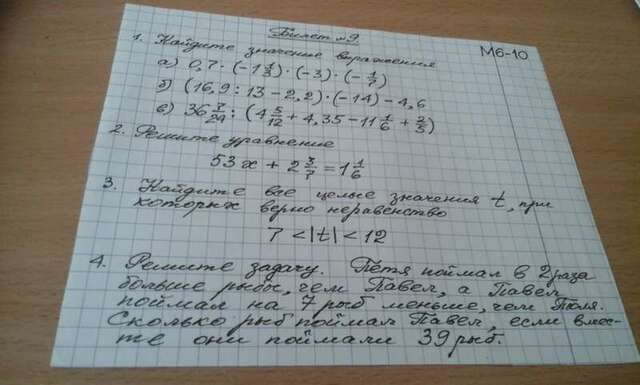 Билет №9
М6-10
1. Найдите значение выражения
а) 0,7 · (-1 1/3) · (-3) · (-1/7)
б) (16,9 : 13 - 2,2) · (-14) - 4,6
в) 36 7/24 : (4 5/12 + 4,35 - 11 1/6 + 2/5)
2. Решите уравнение
53x + 2 3/7 = 1 1/6
3. Найдите все целые значения t, при
которых верно неравенство
7 < |t| < 12
4. Решите задачу. Петя поймал в 2 раза
больше рыбы, чем Павел, а Павел
поймал на 7 рыб меньше, чем Толя.
Сколько рыб поймал Павел, если вмес-
те они поймали 39 рыб.